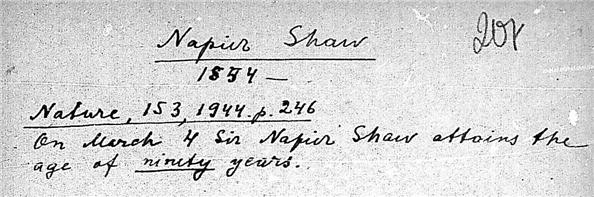 Napier Shaw
201
1854 –
Nature, 153, 1944. p. 246
On March 4 Sir Napier Shaw attains the
age of ninety years.